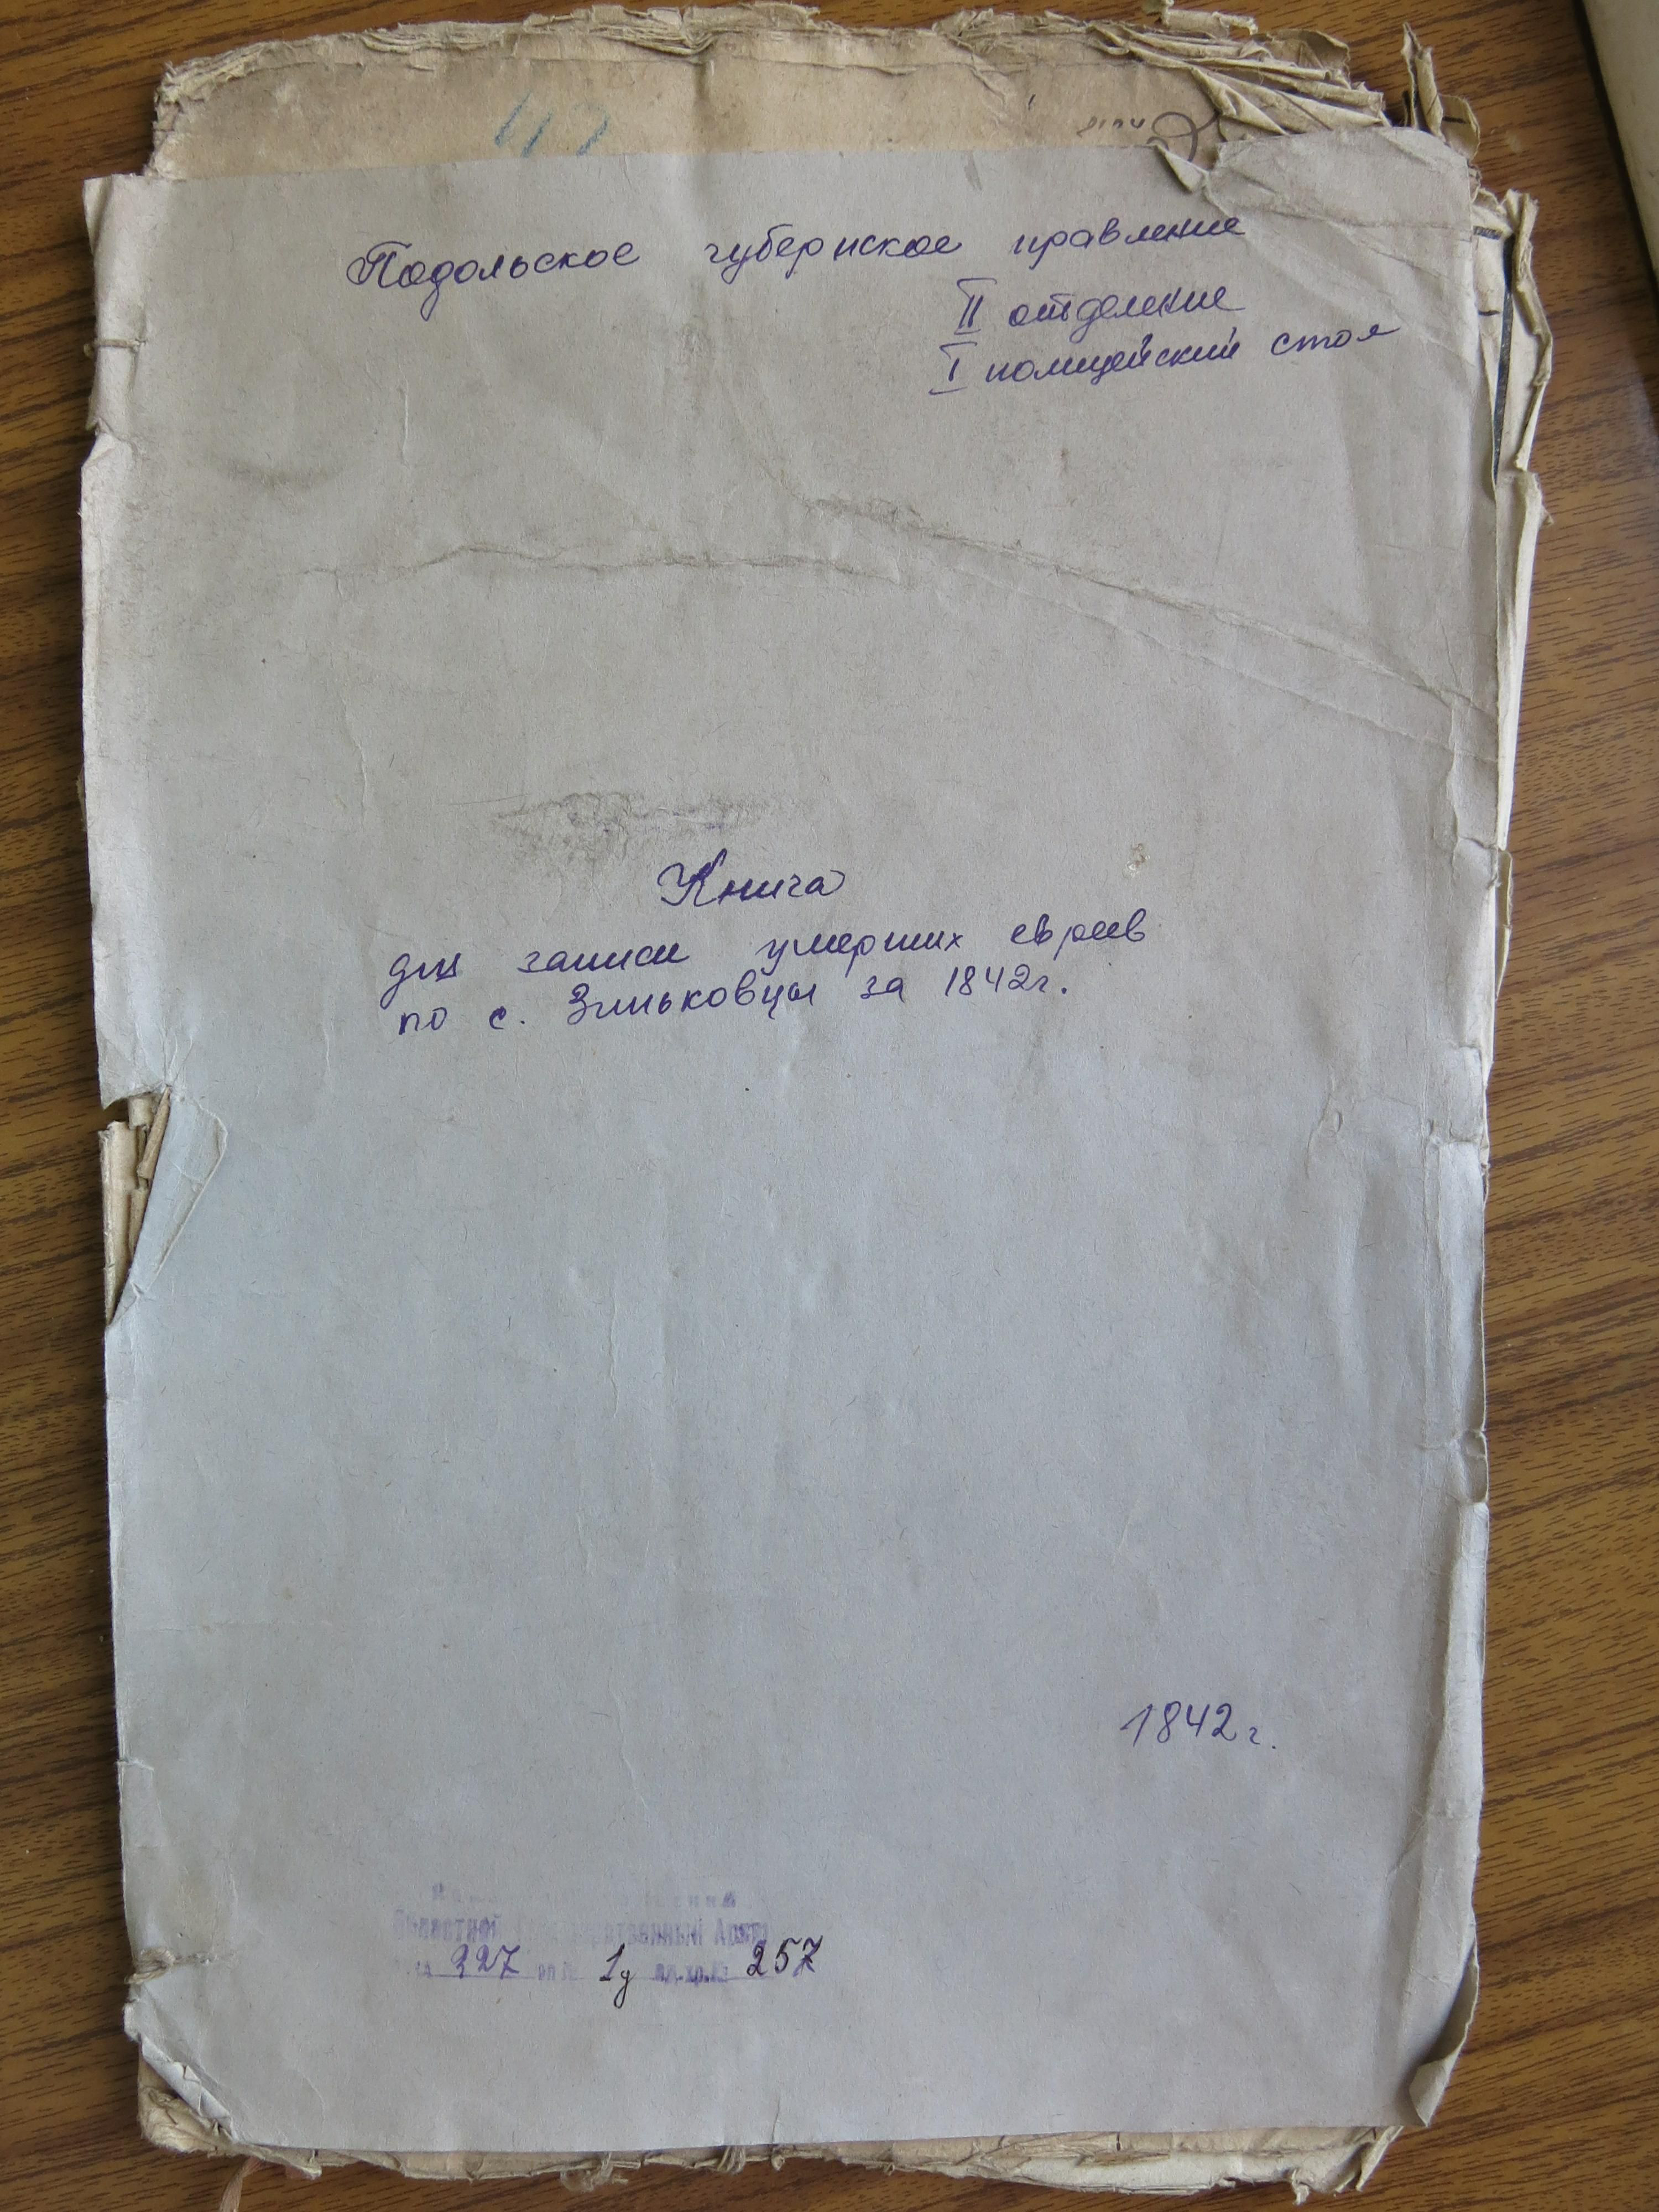 Подольское губернское правление
II отделение
I полицейский стол
Книга
для записи умерших евреев
по с. Зиньковцы за 1842г.
1842г.
Областной Государственный Архив
227 оп. 1д ед.хр. 257